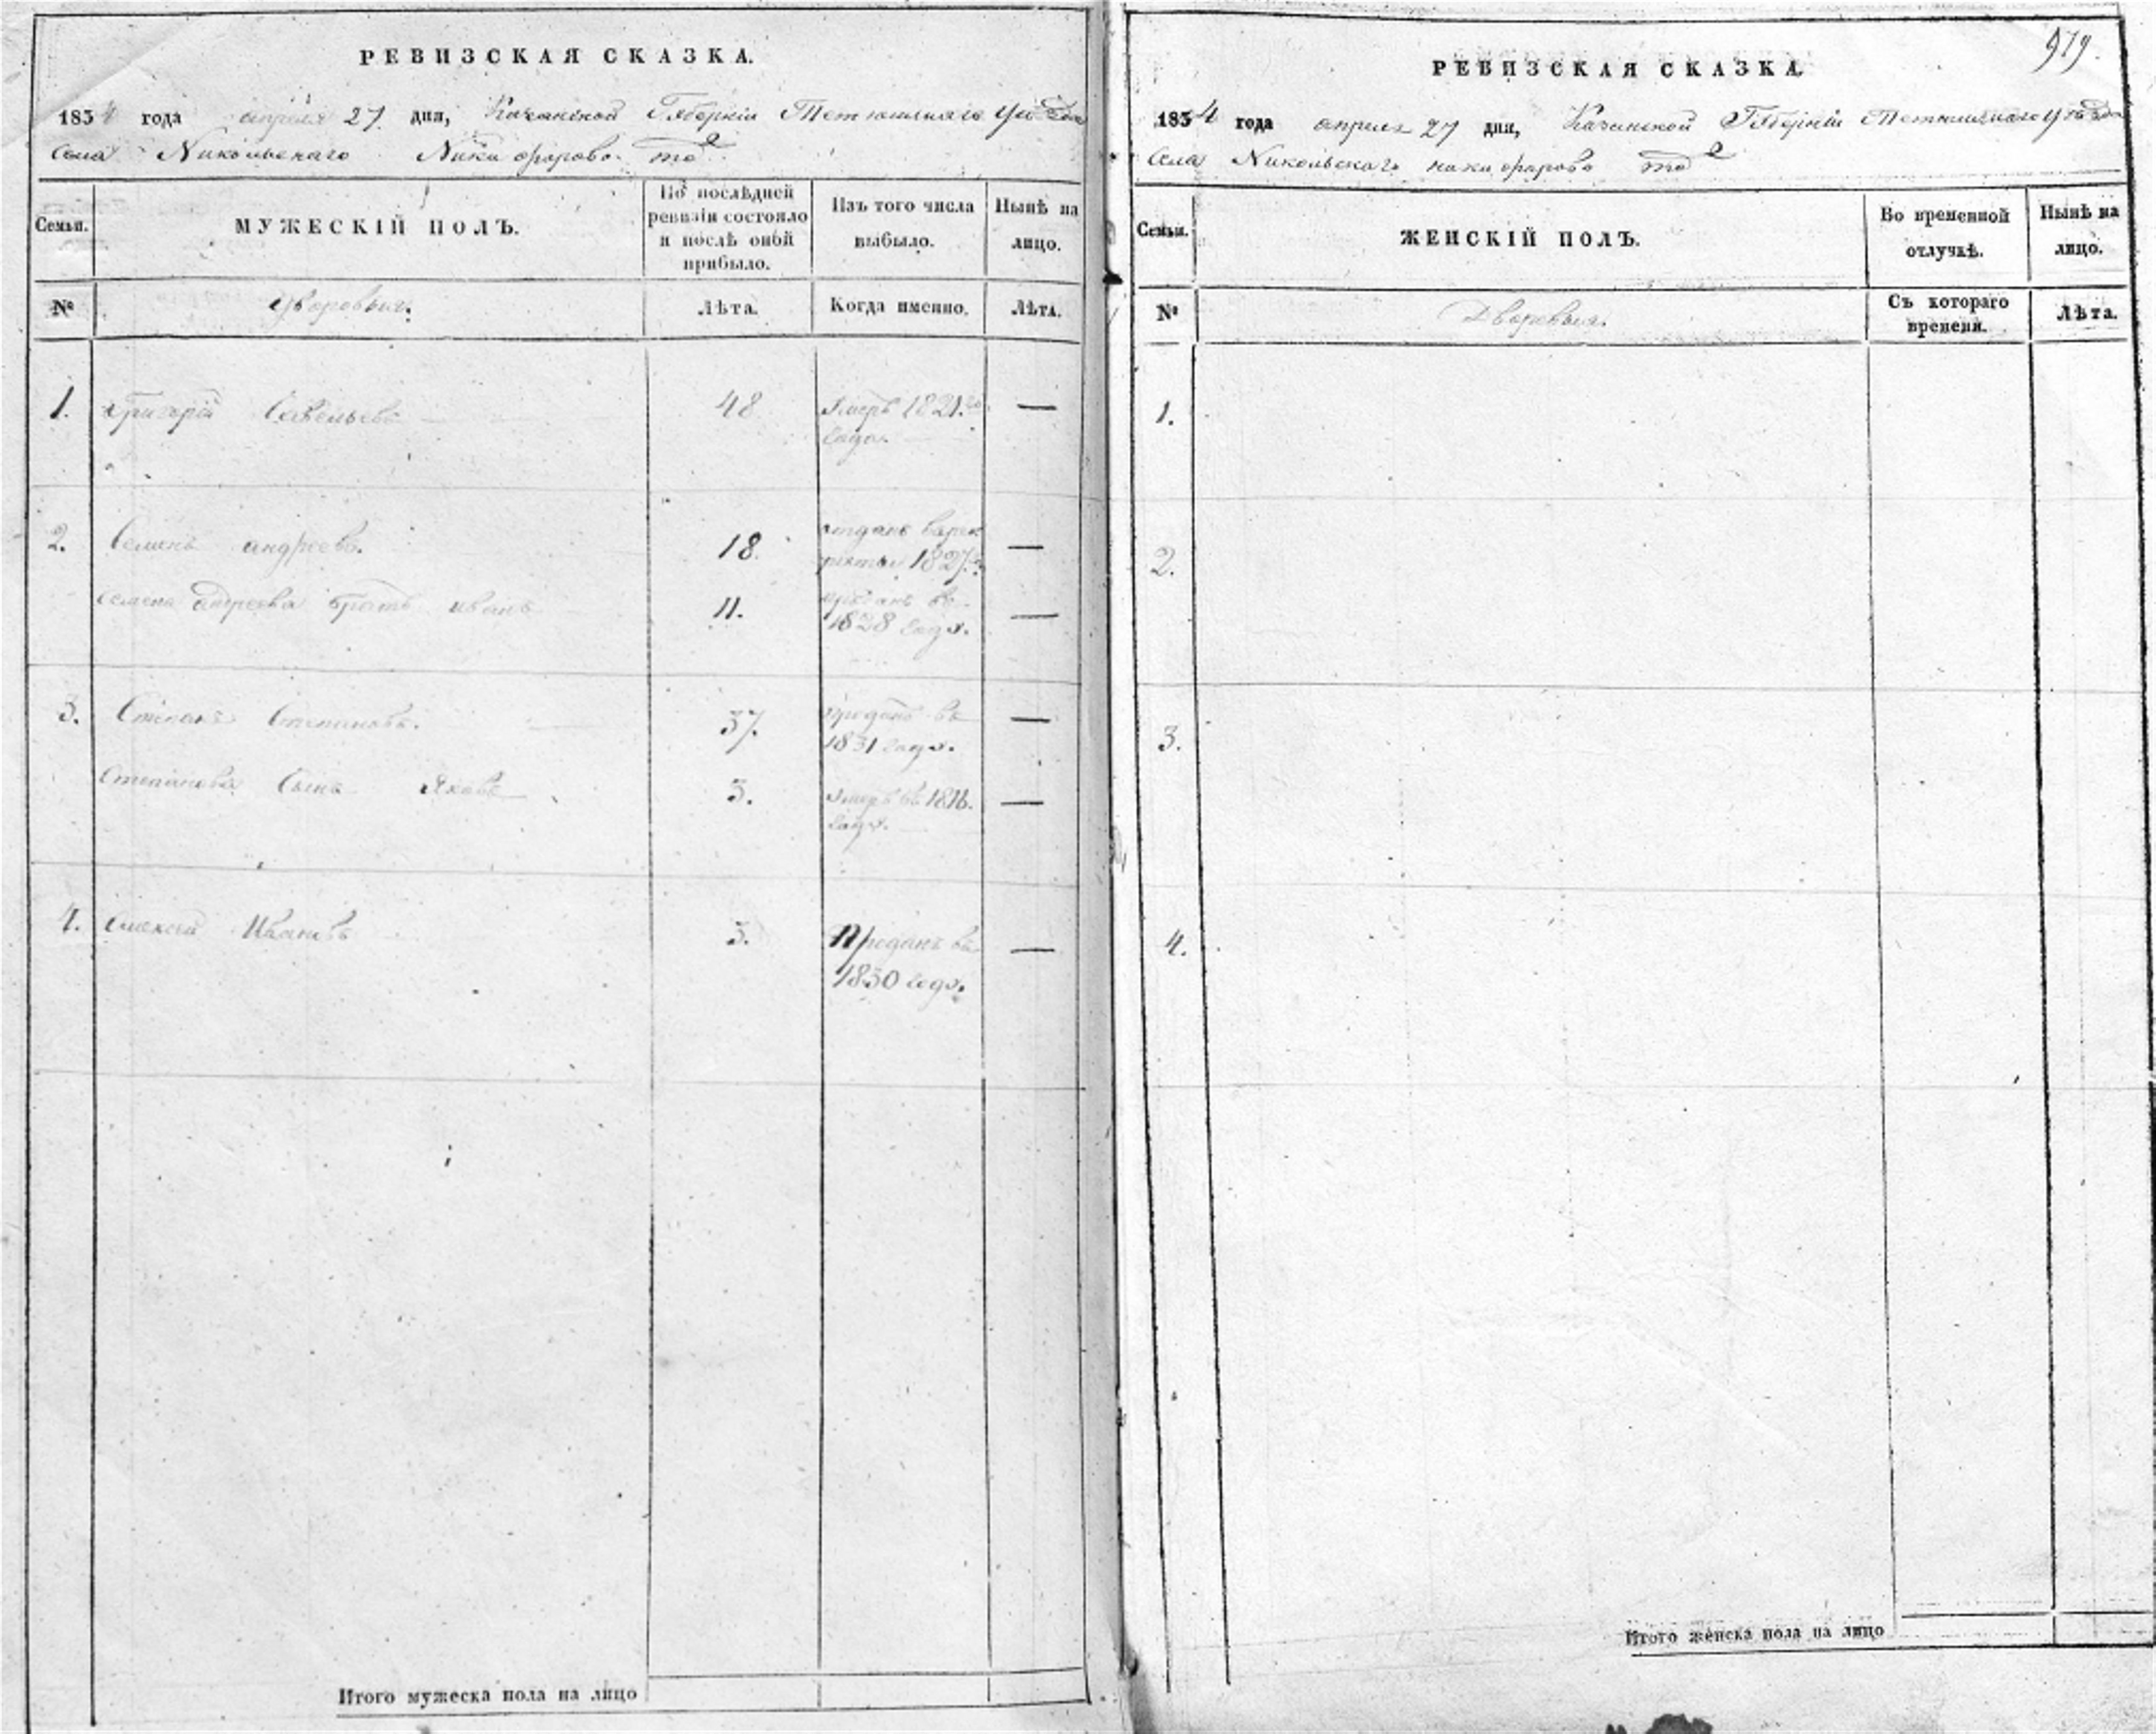 РЕВИЗСКАЯ СКАЗКА.
1834 года апреля 27 дня, Казанской Губернiи Тетюшскаго Уѣзда
Села Никольскаго Никифорово то
Семьи.
МУЖЕСКІЙ ПОЛЪ.
По послѣдней ревизіи состояло и послѣ оной прибыло.
Изъ того числа выбыло.
Нынѣ на лицо.
№
Дворовыя.
Лѣта.
Когда именно.
Лѣта.
1. Григорiй Савельевъ 48 Умеръ 1821.го —
года.
2. Семенъ андреевъ. 18. отданъ варек —
руты 1827.
Семена андреева братъ иванъ 11. проданъ въ —
1828 году.
3. Степанъ Степановъ. 37. проданъ въ —
1831 году.
Степанова Сынъ Яковъ 3. Умеръ въ 1816. —
году.
4. Алексей Ивановъ 3. Проданъ въ —
1830 году.
Итого мужеска пола на лицо
979.
РЕВИЗСКАЯ СКАЗКА.
1834 года апреля 27 дня, Казанской Губернiи Тетюшскаго Уѣзда
Села Никольскаго никифорово то
Семьи.
ЖЕНСКІЙ ПОЛЪ.
Во временной отлучкѣ.
Нынѣ на лицо.
№
Дворовыя.
Съ котораго времени.
Лѣта.
1.
2.
3.
4.
Итого женска пола на лицо